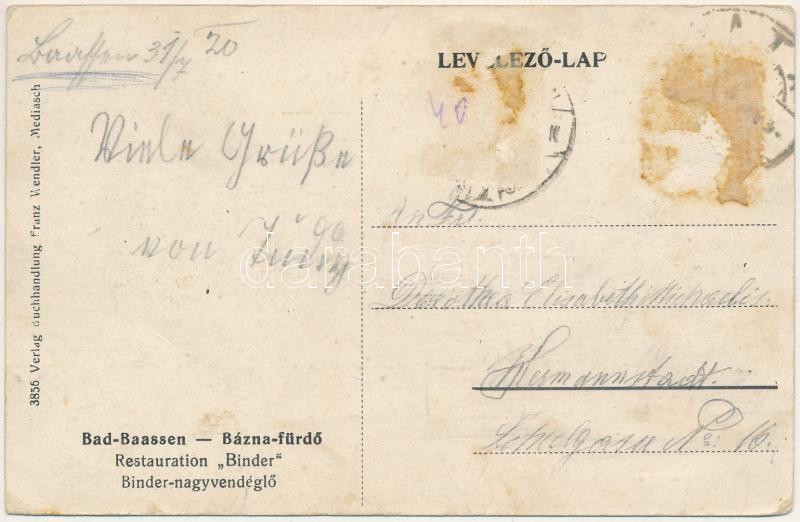 Baassen 31/V 20
LEVELEZŐ-LAP
40
Viele Grüße
von
An Frl.
Dorothea Elisabeth Michaelis.
Hermannstadt.
Schulgasse No: 16.
3856 Verlag Buchhandlung Franz Wendler, Mediasch
Bad-Baassen — Bázna-fürdő
Restauration „Binder“
Binder-nagyvendéglő
darabanth